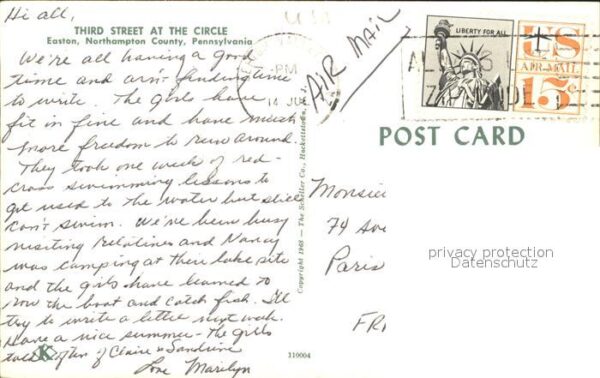 Hi all,
THIRD STREET AT THE CIRCLE
Easton, Northampton County, Pennsylvania
We're all having a good
time and arn't finding time
to write. The girls have
fit in fine and have much
more freedom to run around.
They took one week of red-
cross swimming lessons to
get used to the water but still
can't swim. We've been busy
visiting relatives and Nancy
was camping at their lake site
and the girls have learned to
row the boat and catch fish. I'll
try to write a little next week.
Have a nice summer - The girls
of Claire & Sandrine
Love Marilyn
PM
14 JUL
AIR MAIL
LIBERTY FOR ALL
US
AIR MAIL
15c
POST CARD
Copyright 1968 — The Scheller Co., Hackettstown, N. J.
Monsie
74 Ave
Paris
FR
privacy protection
Datenschutz
K
110004